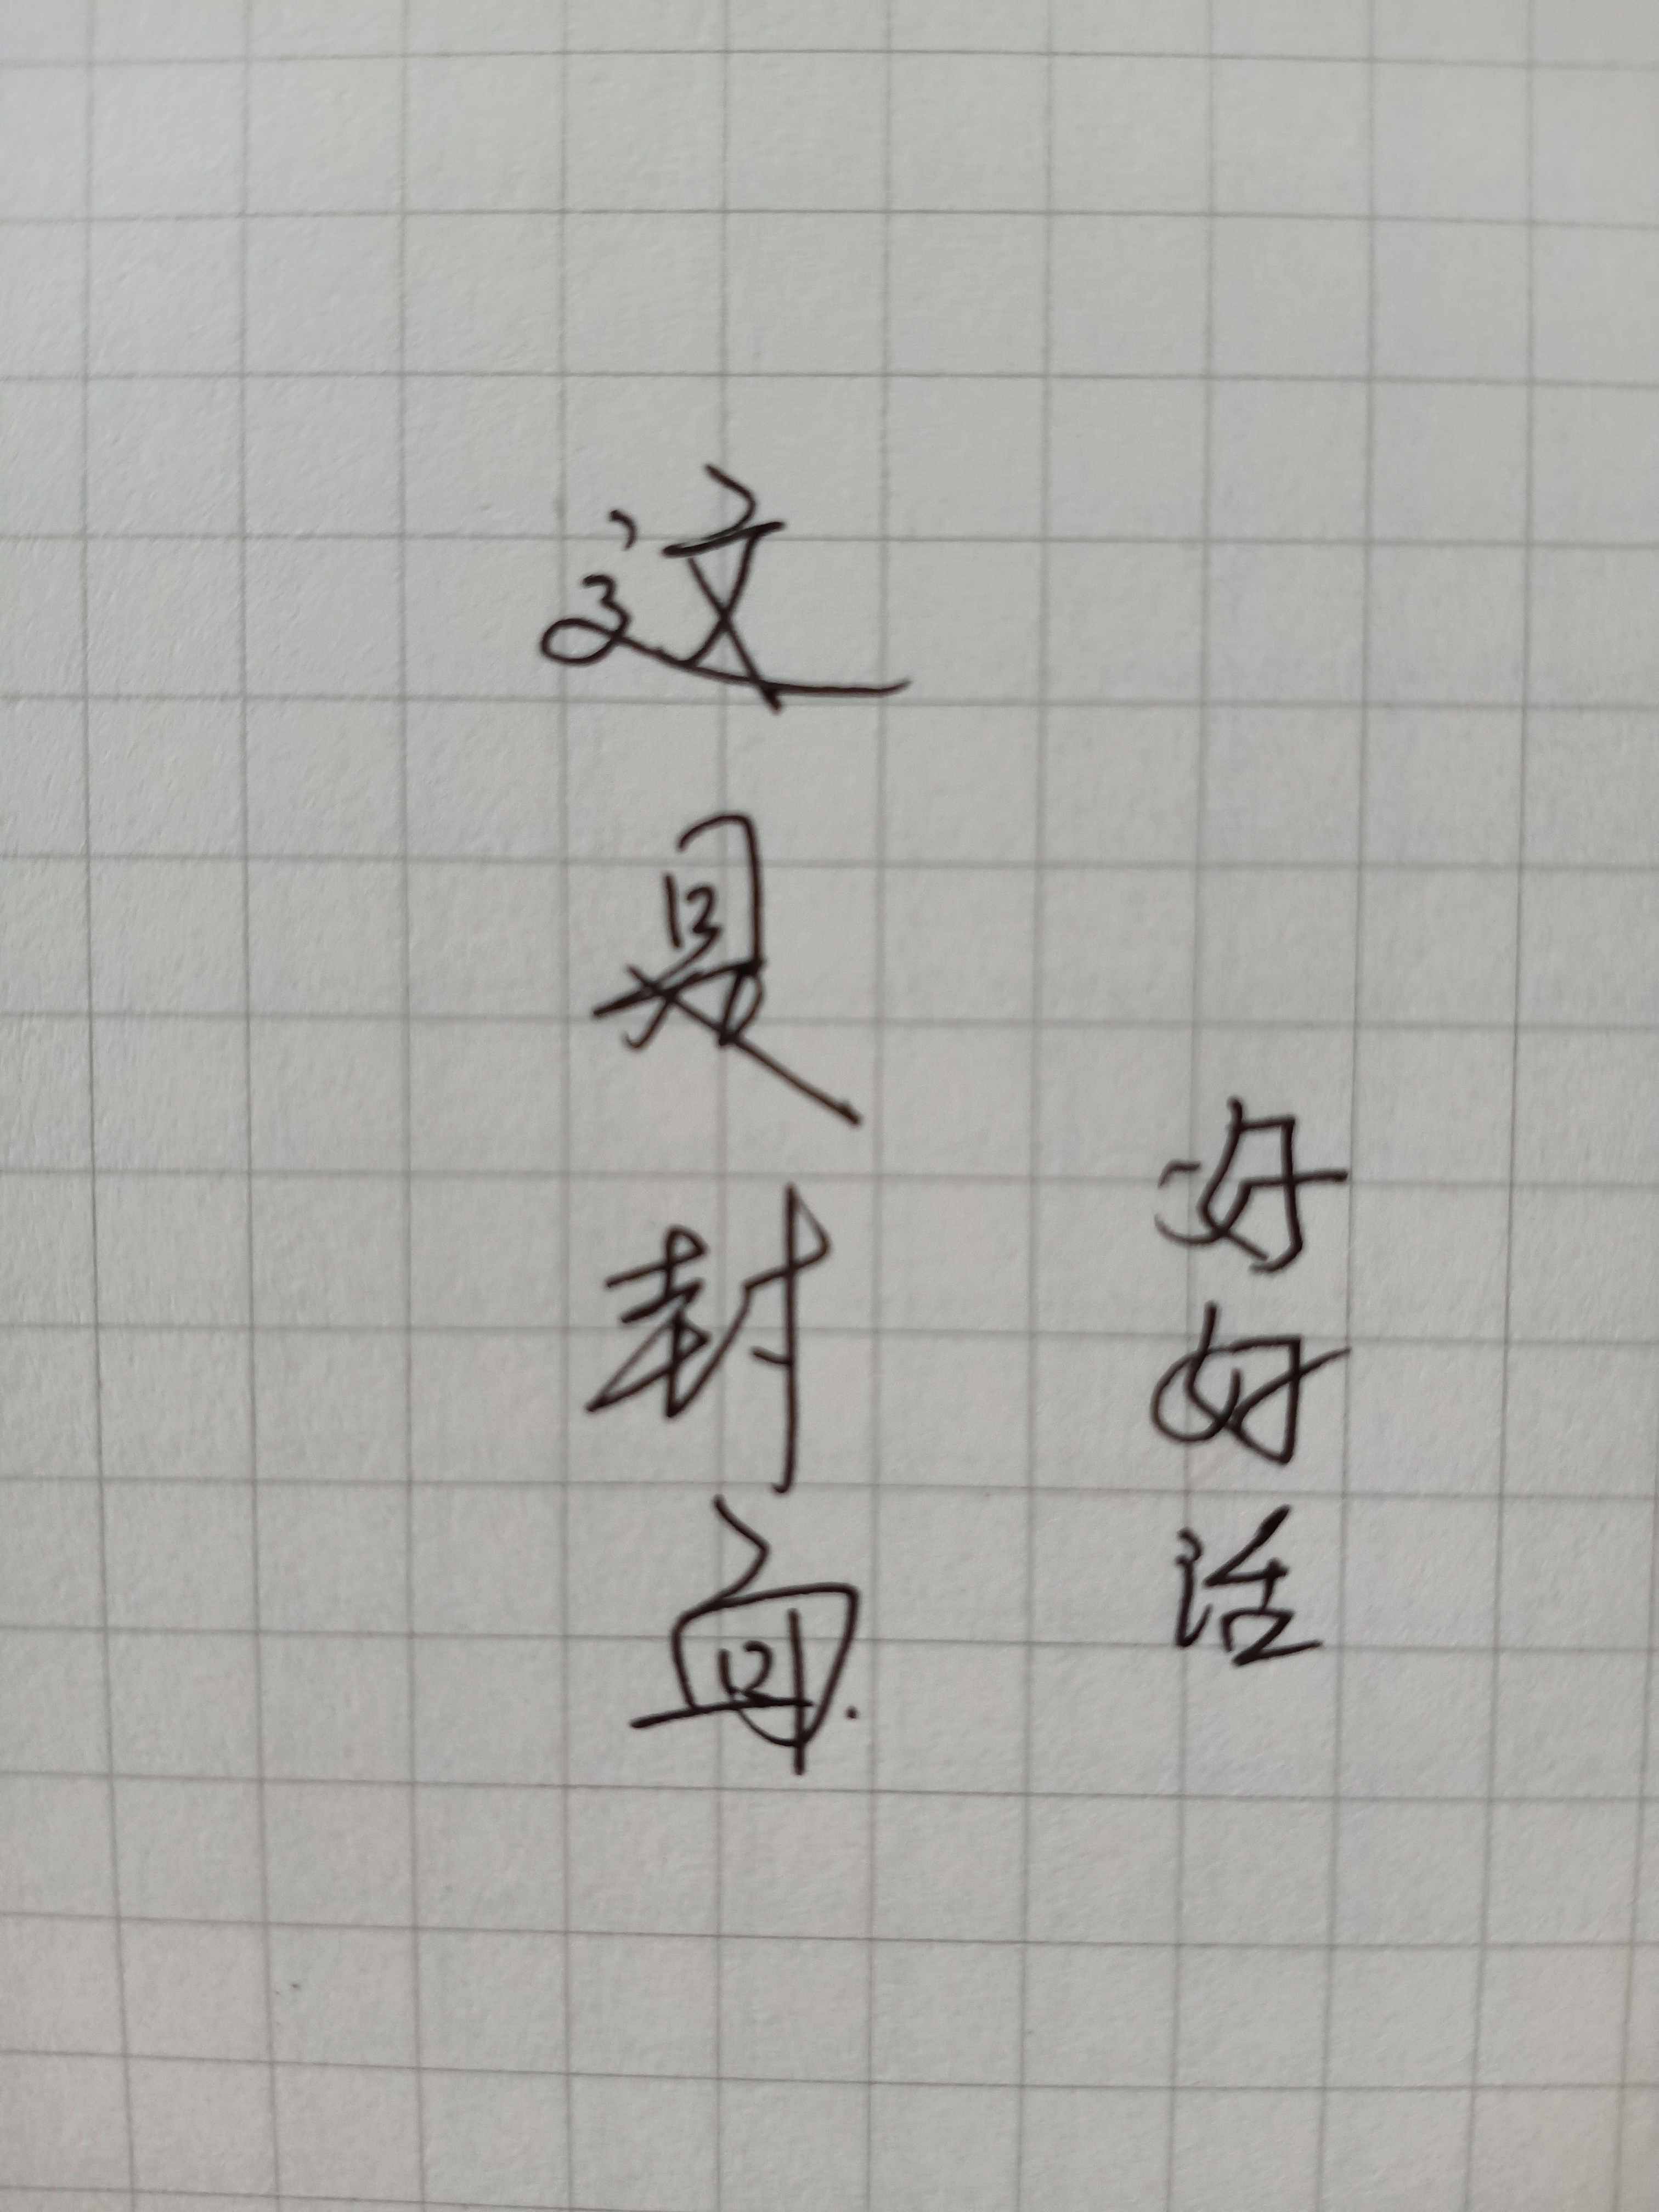 这是封面.
好好活